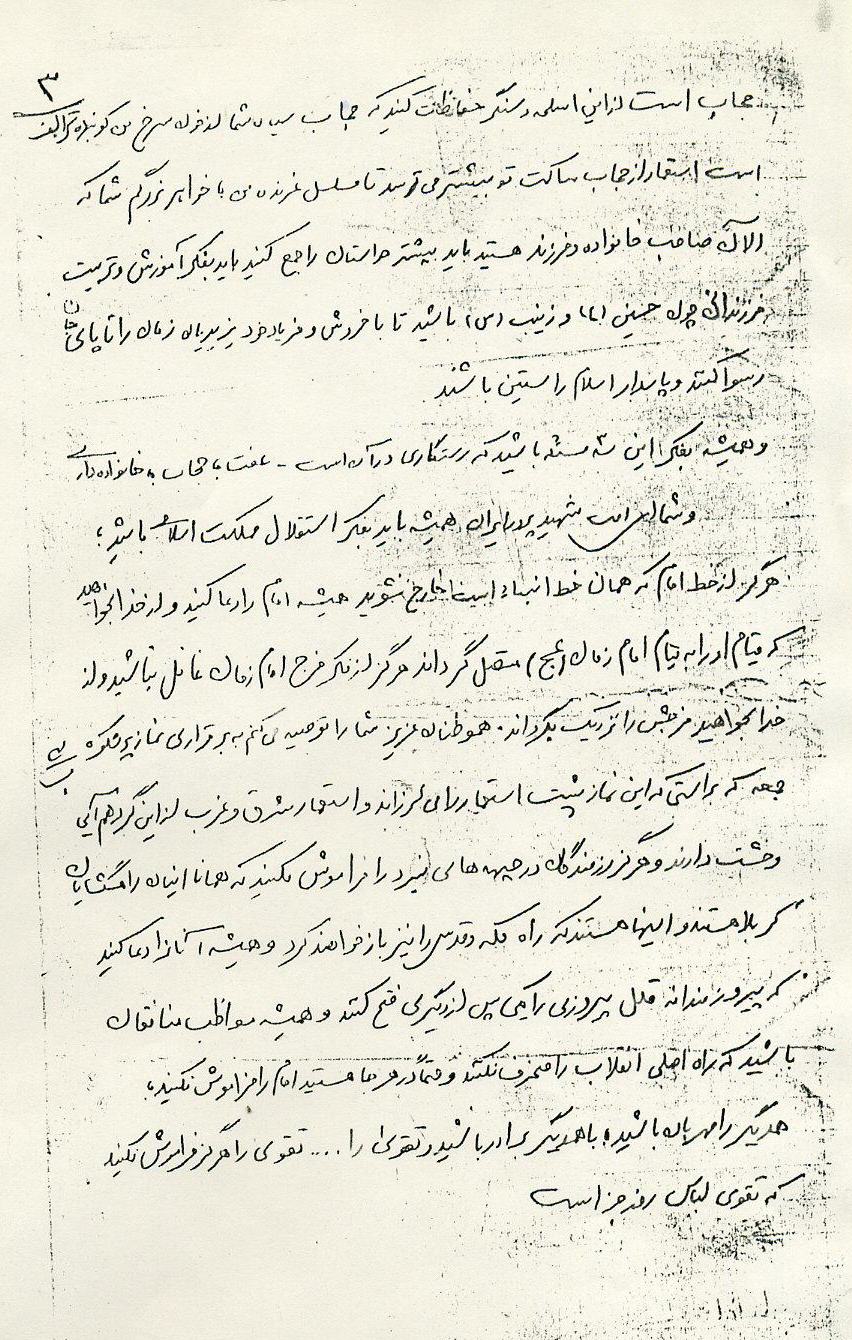 ۳
حجاب است از این اسلحه و سنگر حفاظت کنید که حجاب سیاه شما از خون سرخ من کوبنده تر
است استعمار از حجاب ساکت تو بیشتر می ترسد تا مسلسل غرنده من با خواهر بزرگم شما که
الان صاحب خانواده و فرزند هستید باید بیشتر حواستان را جمع کنید باید بفکر آموزش و تربیت
فرزندانی چون حسین (ع) و زینب (س) باشید تا با خروش و فریاد خود یزیدیان زمان را تا پای جان
رسوا کنند و پاسدار اسلام راستین باشند
و همیشه بفکر این سه مسئله باشید که رستگاری در آن است - عفت با حجاب به خانواده داری
و شما ای امت شهید پرور ایران همیشه باید بفکر استقلال مملکت اسلامی باشید؛
هرگز از خط امام که همان خط انبیاء است خارج نشوید همیشه امام را دعا کنید و از خدا بخواهید
که قیام او را به قیام امام زمان (عج) متصل گرداند هرگز از فکر فرج امام زمان غافل نباشید و از
خدا بخواهید فرجش را نزدیک بگرداند. هموطنان عزیز شما را توصیه می کنم به برقراری نماز پر شکوه
جمعه که براستی که این نماز پشت استعمار را می لرزاند و استعمار شرق و غرب از این گردهم آیی
وحشت دارند و هرگز رزمندگان در جبهه های نبرد را فراموش نکنید که همانا اینان راهگشایان
کربلا هستند و اینها هستند که راه مکه و قدس را نیز باز خواهند کرد و همیشه آنانرا دعا کنید
که پیروزمندانه قلل پیروزی را یکی پس از دیگری فتح کنند و همیشه مواظب منافقان
باشید که راه اصلی انقلاب را منحرف نکنند و حتماً در هر جا هستید امام را فراموش نکنید؛
همدیگر را مهربان باشید، با همدیگر برادر باشید و تقوی را .... تقوی را هرگز فراموش نکنید
که تقوی لباس روز جزا است